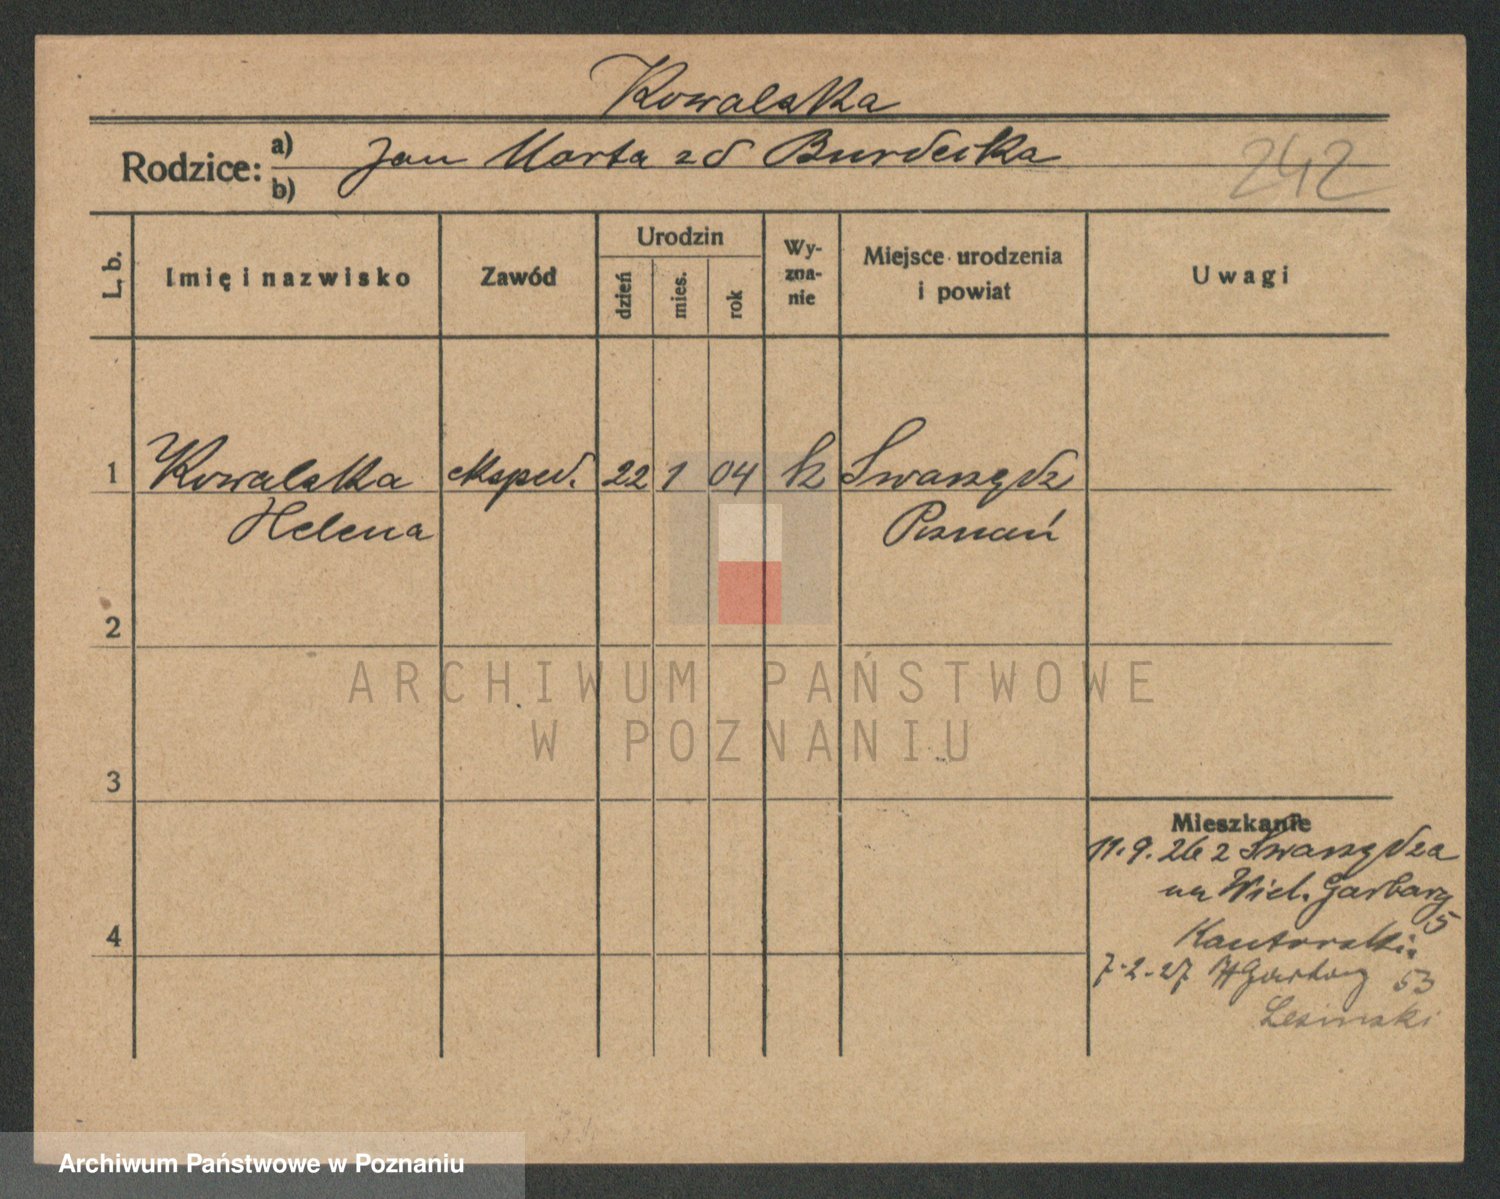 Kowalska
Rodzice: a) Jan Marta zd Burdecka
b)
242
L. b.
Imię i nazwisko
Zawód
Urodzin
dzień
mies.
rok
Wy-
zna-
nie
Miejsce urodzenia
i powiat
Uwagi
1 Kowalska eksped. 22 1 04 k Swarzędz
Helena Poznań
2
3
4
Mieszkanie
11.9.26 z Swarzędza
na Wiel. Garbary
5
Kantorski
7.2.27 W Garbary 53
Lesinski
ARCHIWUM PAŃSTWOWE
W POZNANIU
Archiwum Państwowe w Poznaniu